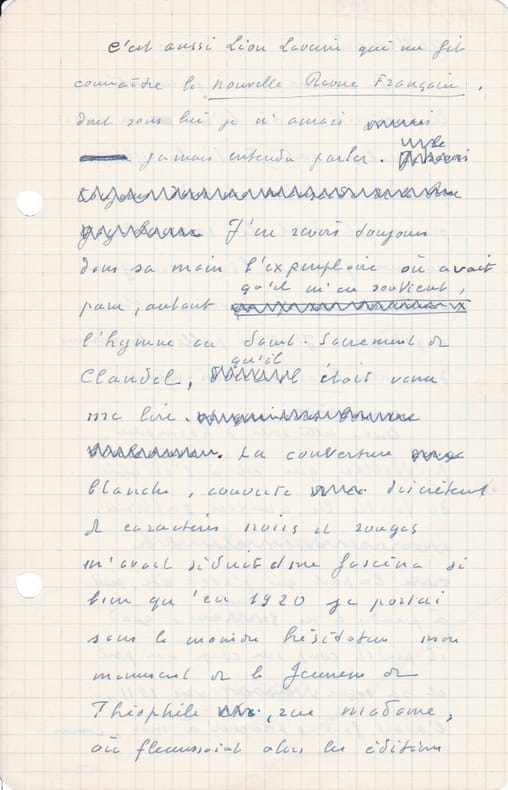 C'est aussi Lion Lavoin qui me fit
connaître la Nouvelle Revue Française,
dont sans lui je n'aurais
jamais entendu parler.
J'en revois toujours
dans sa main l'exemplaire où avait
paru, autant qu'il m'en souvient,
l'hymne au Saint-Sacrement de
Claudel, qu'il était venu
me lire.
La couverture
blanche, couverte discrètement
de caractères noirs et rouges
m'avait séduit et me fascina si
bien qu'en 1920 je portai
sans la moindre hésitation mon
manuscrit de la Jeunesse de
Théophile, rue Madame,
où fleurissaient alors les éditions